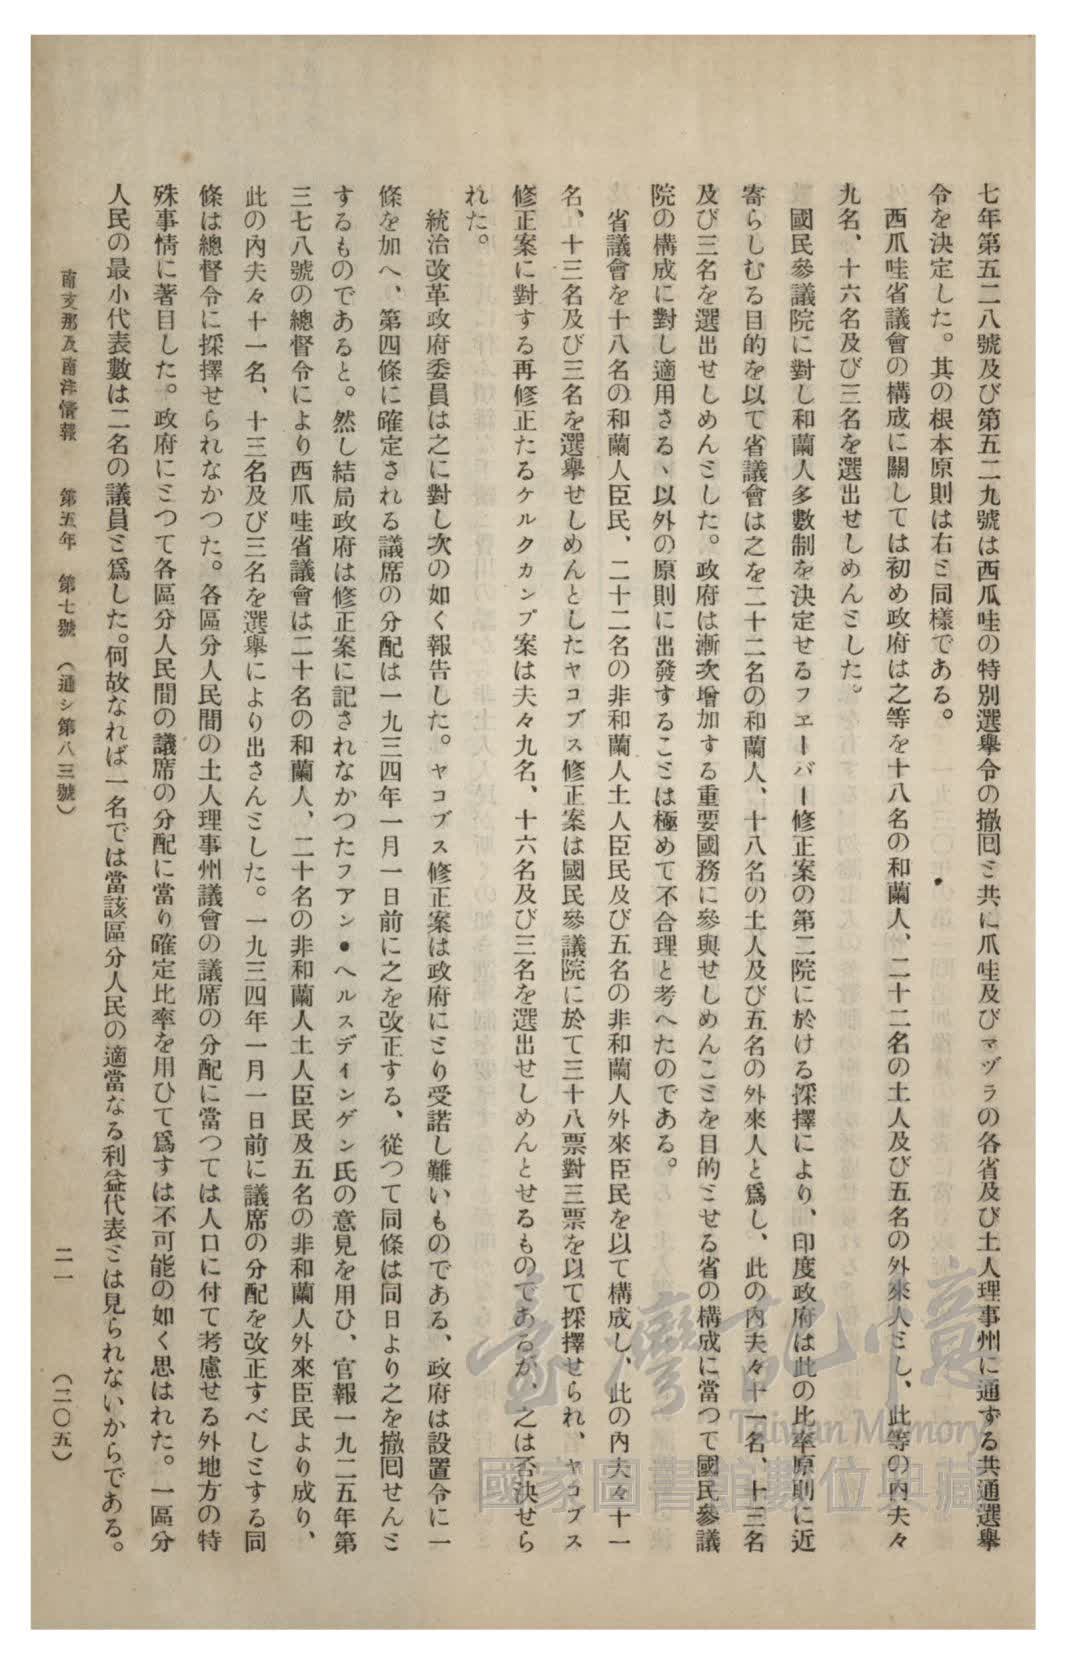 七年第五二八號及び第五二九號は西瓜哇の特別選擧令の撤囘ミ共に爪哇及びマヅラの各省及び土人理事州に通ずる共通選擧
令を決定した。其の根本原則は右ミ同樣である。
西爪哇省議會の構成に關しては初め政府は之等を十八名の和蘭人、二十二名の土人及び五名の外來人ミし、此等の內夫々
九名、十六名及び三名を選出せしめんミした。
國民參議院に對し和蘭人多數制を決定せるフエーバー修正案の第二院に於ける採擇により、印度政府は此の比率原則に近
寄らしむる目的を以て省議會は之を二十二名の和蘭人、十八名の土人及び五名の外來人と爲し、此の內夫々十一名、十三名
及び三名を選出せしめんミした。政府は漸次增加する重要國務に參與せしめんこミを目的ミせる省の構成に當つて國民參議
院の構成に對し適用さるヽ以外の原則に出發するこミは極めて不合理と考へたのである。
省議會を十八名の和蘭人臣民、二十二名の非和蘭人土人臣民及び五名の非和蘭人外來臣民を以て構成し、此の內夫々十一
名、十三名及び三名を選擧せしめんとしたヤコブス修正案は國民參議院に於て三十八票對三票を以て採擇せられ、ヤコブス
修正案に對する再修正たるケルクカンプ案は夫々九名、十六名及び三名を選出せしめんとせるものであるが、之は否決せら
れた。
統治改革政府委員は之に對し次の如く報告した。ヤコブス修正案は政府にミり受諾し難いものである、政府は設置令に一
條を加へ、第四條に確定される議席の分配は一九三四年一月一日前に之を改正する、從つて同條は同日より之を撤囘せんミ
するものであると。然し結局政府は修正案に記されなかつたフアン・ヘルスデインゲン氏の意見を用ひ、官報一九二五年第
三七八號の總督令により西爪哇省議會は二十名の和蘭人、二十名の非和蘭人土人臣民及五名の非和蘭人外來臣民より成り、
此の內夫々十一名、十三名及び三名を選擧により出さんミした。一九三四年一月一日前に議席の分配を改正すべしミする同
條は總督令に採擇せられなかつた。各區分人民間の土人理事州議會の議席の分配に當つては人口に付て考慮せる外地方の特
殊事情に著目した。政府にミつて各區分人民間の議席の分配に當り確定比率を用ひて爲すは不可能の如く思はれた。一區分
人民の最小代表數は二名の議員ミ爲した。何故なれば一名では當該區分人民の適當なる利益代表ミは見られないからである。
南支那及南洋情報　第五年　第七號　（通シ第八三號）
二一　（二〇五）
臺灣記憶
Taiwan Memory
國家圖書館數位典藏